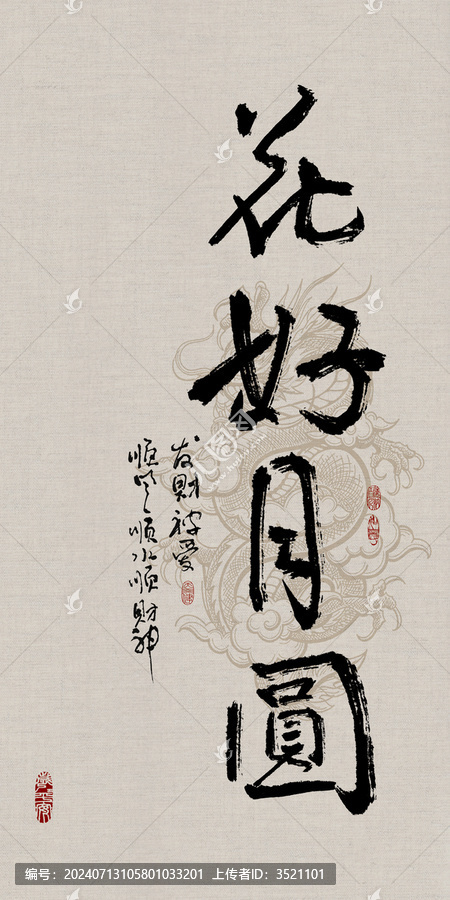 花好月圓
发财被爱
顺风顺水顺财神
编号：20240713105801033201 上传者ID：3521101